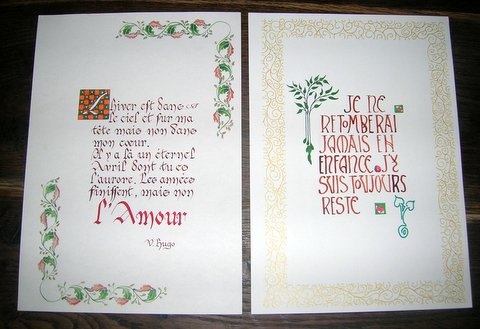 L'hiver est dans
le ciel et sur ma
tête mais non dans
mon cœur.
Il y a là un éternel
Avril dont tu es
l'aurore. Les années
finissent, mais non
l'Amour
V. Hugo
JE NE
RETOMBERAI
JAMAIS EN
ENFANCE. J'Y
SUIS TOUJOURS
RESTE